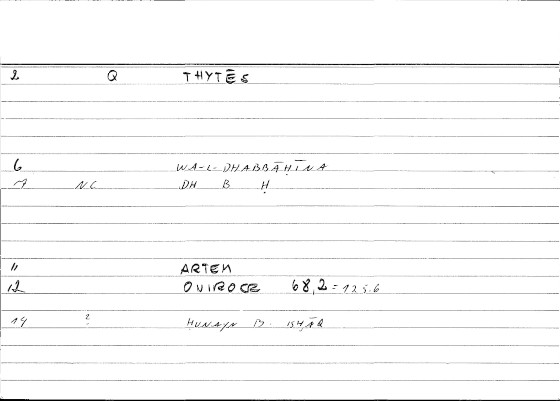 2 Q THYTĒS
6 WA-L-DHABBĀḤĪNA
7 NC DH B Ḥ
11 ARTEM
12 ONIROCR 68,2 = 125.6
14 ? ḤUNAYN B. ISḤĀQ